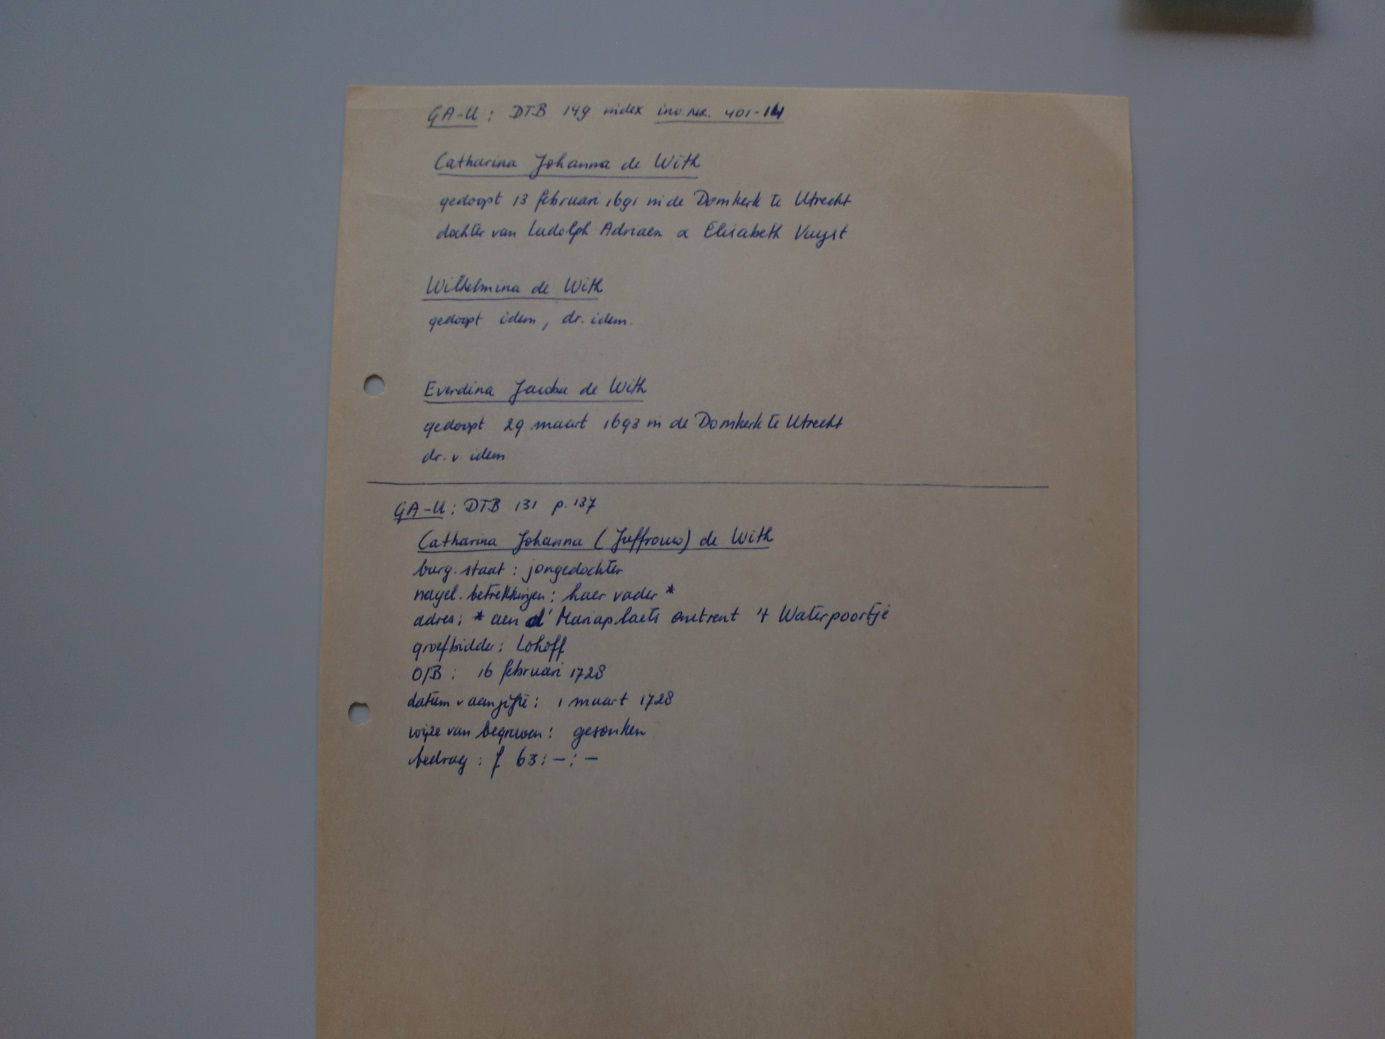 GA-U: DTB 149 index inv.nr. 401-14
Catharina Johanna de With
gedoopt 13 februari 1691 in de Domkerk te Utrecht
dochter van Ludolph Adriaen & Elisabeth Vuyst
Wilhelmina de With
gedoopt idem, dr. idem.
Everdina Jacoba de With
gedoopt 29 maart 1693 in de Domkerk te Utrecht
dr. v. idem
GA-U: DTB 131 p. 137
Catharina Johanna (Juffrouw) de With
burg. staat: jongedochter
nagel. betrekkingen: haer vader *
adres: * aen d' Mariaplaets omtrent 't Waterpoortje
groefbidder: Lohoff
O/B: 16 februari 1728
datum v aangifte: 1 maart 1728
wijze van begraven: gesonken
bedrag: f 63:-:-